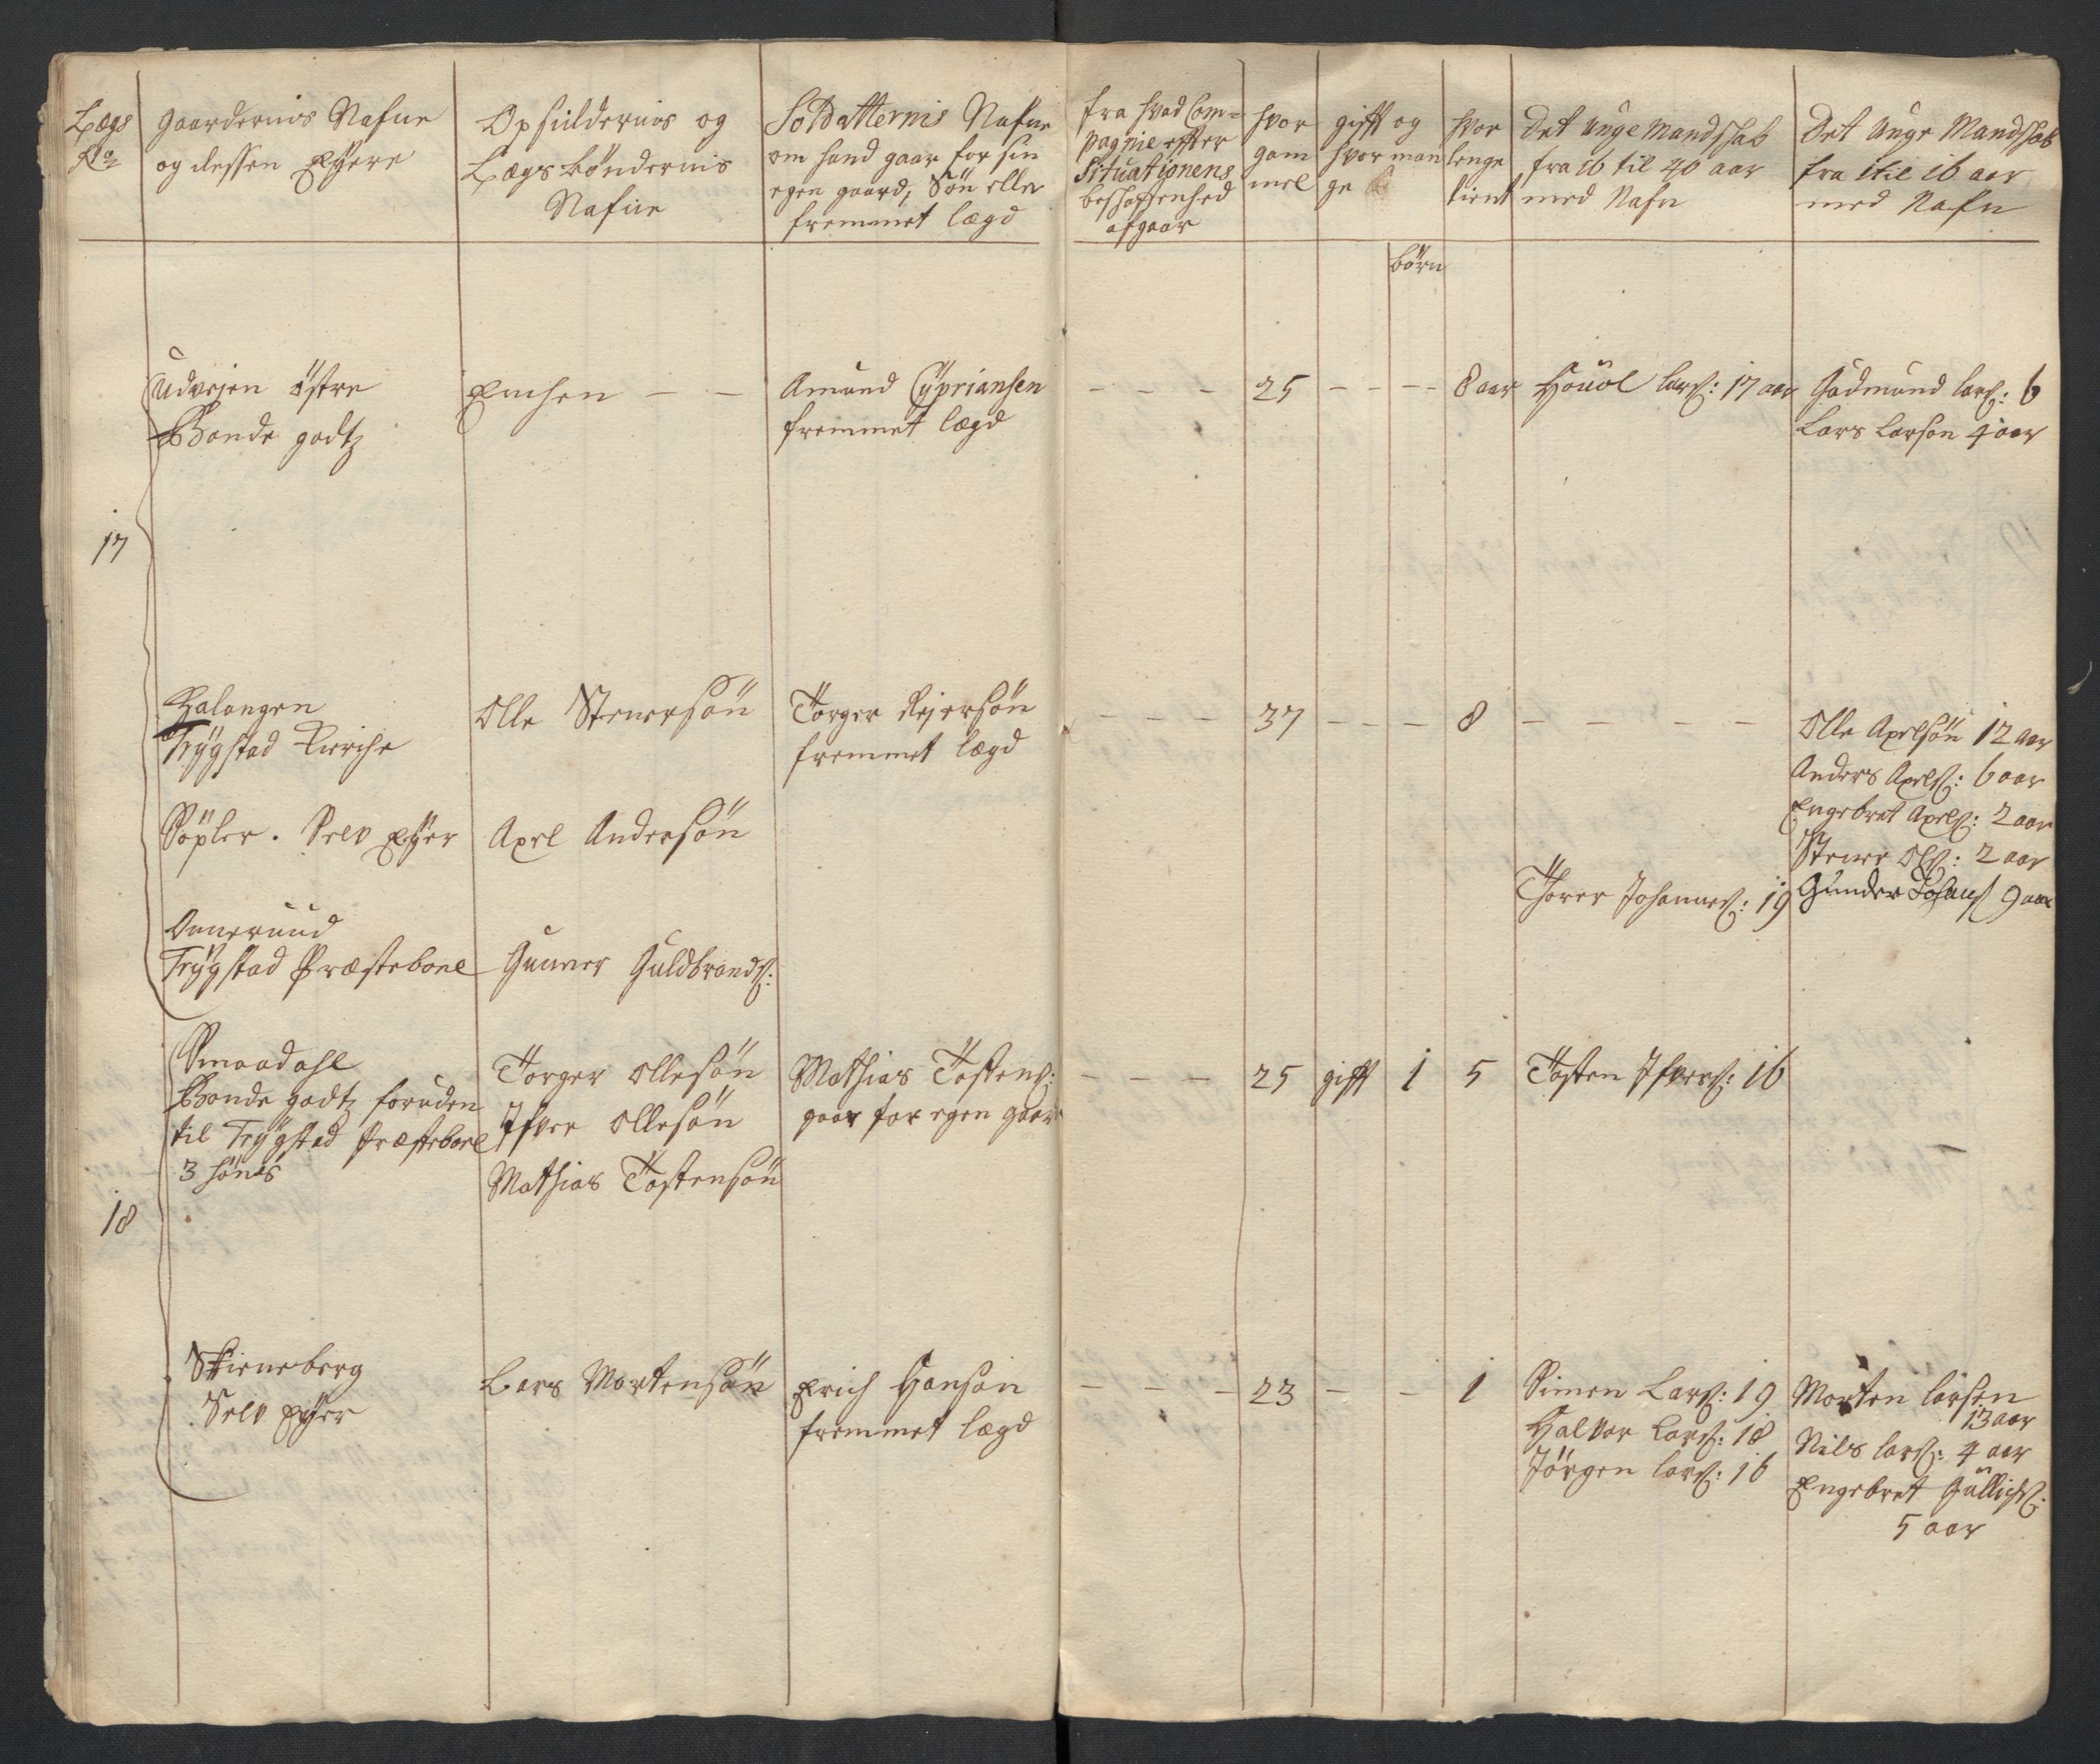 Lægs
No
Gaardernis Nafne
og dessen Eÿere
Opsiddernis og
Lægs bøndernis
Nafne
Soldatternis Nafne
om hand gaar for sin
egen gaard, Søn eller
fremmet lægd
fra hvad Com=
pagnie effter
Situationens
beskaffenhed
afgaar
hvor
gam
mel
gifft og
hvor man
ge
børn
hvor
lenge
tient
Det unge Mandskab
fra 16 til 40 aar
med Nafn
Det unge Mandskab
fra 1 til 16 aar
med Nafn
17
Udvejen østre
Bonde godtz
Enchen — —
Amund Cÿpriansen
fremmet lægd
— — — 25 — — — 8 aar
Houol Larß: 17 aar
Gudmund Larß: 6
Lars Larsøn 4 aar
Kalangen
Trÿgstad Kirche
Olle Stenersøn
Torger Rejersøn
fremmet lægd
— — — 37 — — — 8 — — — —
Olle Axelsøn 12 aar
Anders Axelß: 6 aar
Engebret Axelß: 2 aar
Stener Olß: 2 aar
Søpler. Selv Eÿer
Axel Andersøn
Thorer Johannesß: 19
Gunder Johanß 9 aar
Onnerund
Trÿgstad Præstebole
Gunner Guldbrandß:
18
Smaadahl
Bonde godtz foruden
til Trÿgstad Præstebole
3 Hönes
Torger Ollesøn
Ifver Ollesøn
Mathias Tostensøn
Mathias Tostenß:
gaar for egen gaar
— — — 25 gifft 1 5
Tosten Ifverß: 16
Skieneberg
Selv Eÿer
Lars Mortensøn
Erich Hansøn
fremmet lægd
— — — 23 — — 1
Simen Larß: 19
Halvor Larß: 18
Jørgen Larß: 16
Morten Larsen
13 aar
Nils Larß: 4 aar
Engebret Gullichß:
5 aar